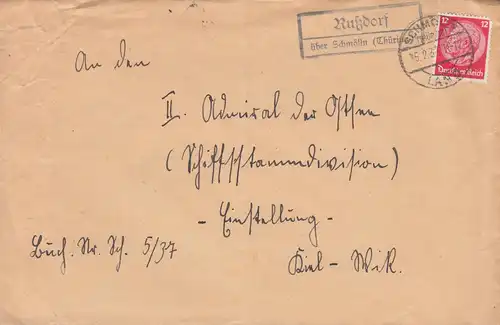 Nußdorf
über Schmölln (Thür)
SCHMÖLLN
12 12
Deutsches Reich
An den
II. Admiral der Ostsee
(Schiffsstammdivision)
- Einstellung -
Buch. Nr. Sch. 5/37
Kiel-Wik.